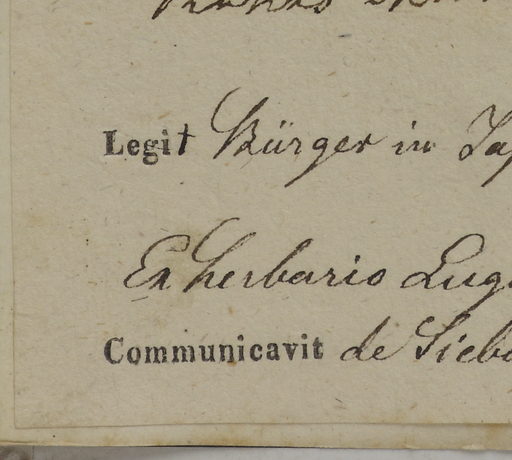 Legit Bürger in Jap
Ex herbario Lugd
Communicavit de Siebo